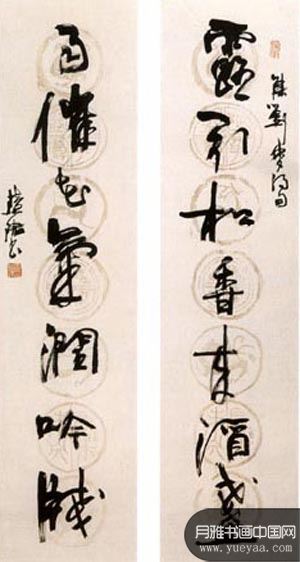 集劉夢得句
露引松香来酒盞
雨催花氣潤吟牋
月雅书画中国网
www.yueyaa.com